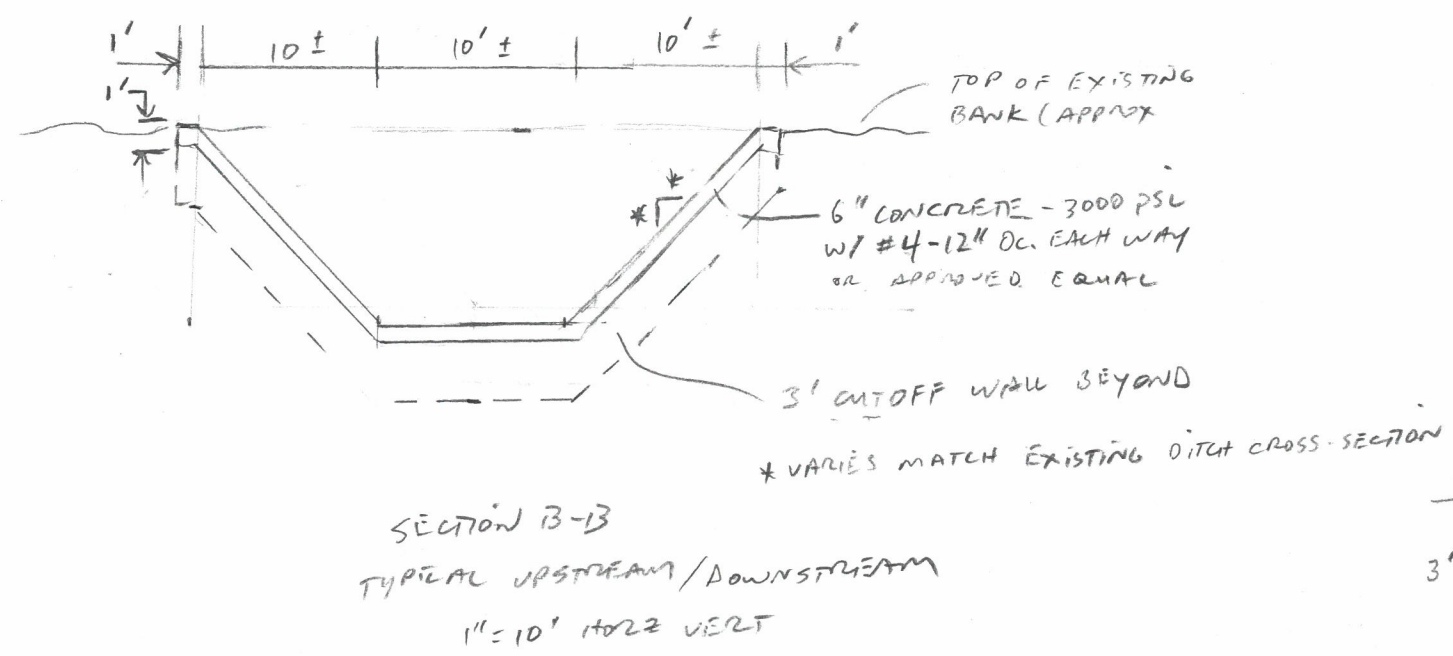 1' 10 ± 10' ± 10' ± 1'
1'
TOP OF EXISTING
BANK (APPROX
*
*
6" CONCRETE - 3000 PSI
W/ #4-12" OC. EACH WAY
OR APPROVED EQUAL
3' CUTOFF WALL BEYOND
* VARIES MATCH EXISTING DITCH CROSS-SECTION
SECTION B-B
TYPICAL UPSTREAM/DOWNSTREAM
3'
1"=10' HORZ VERT